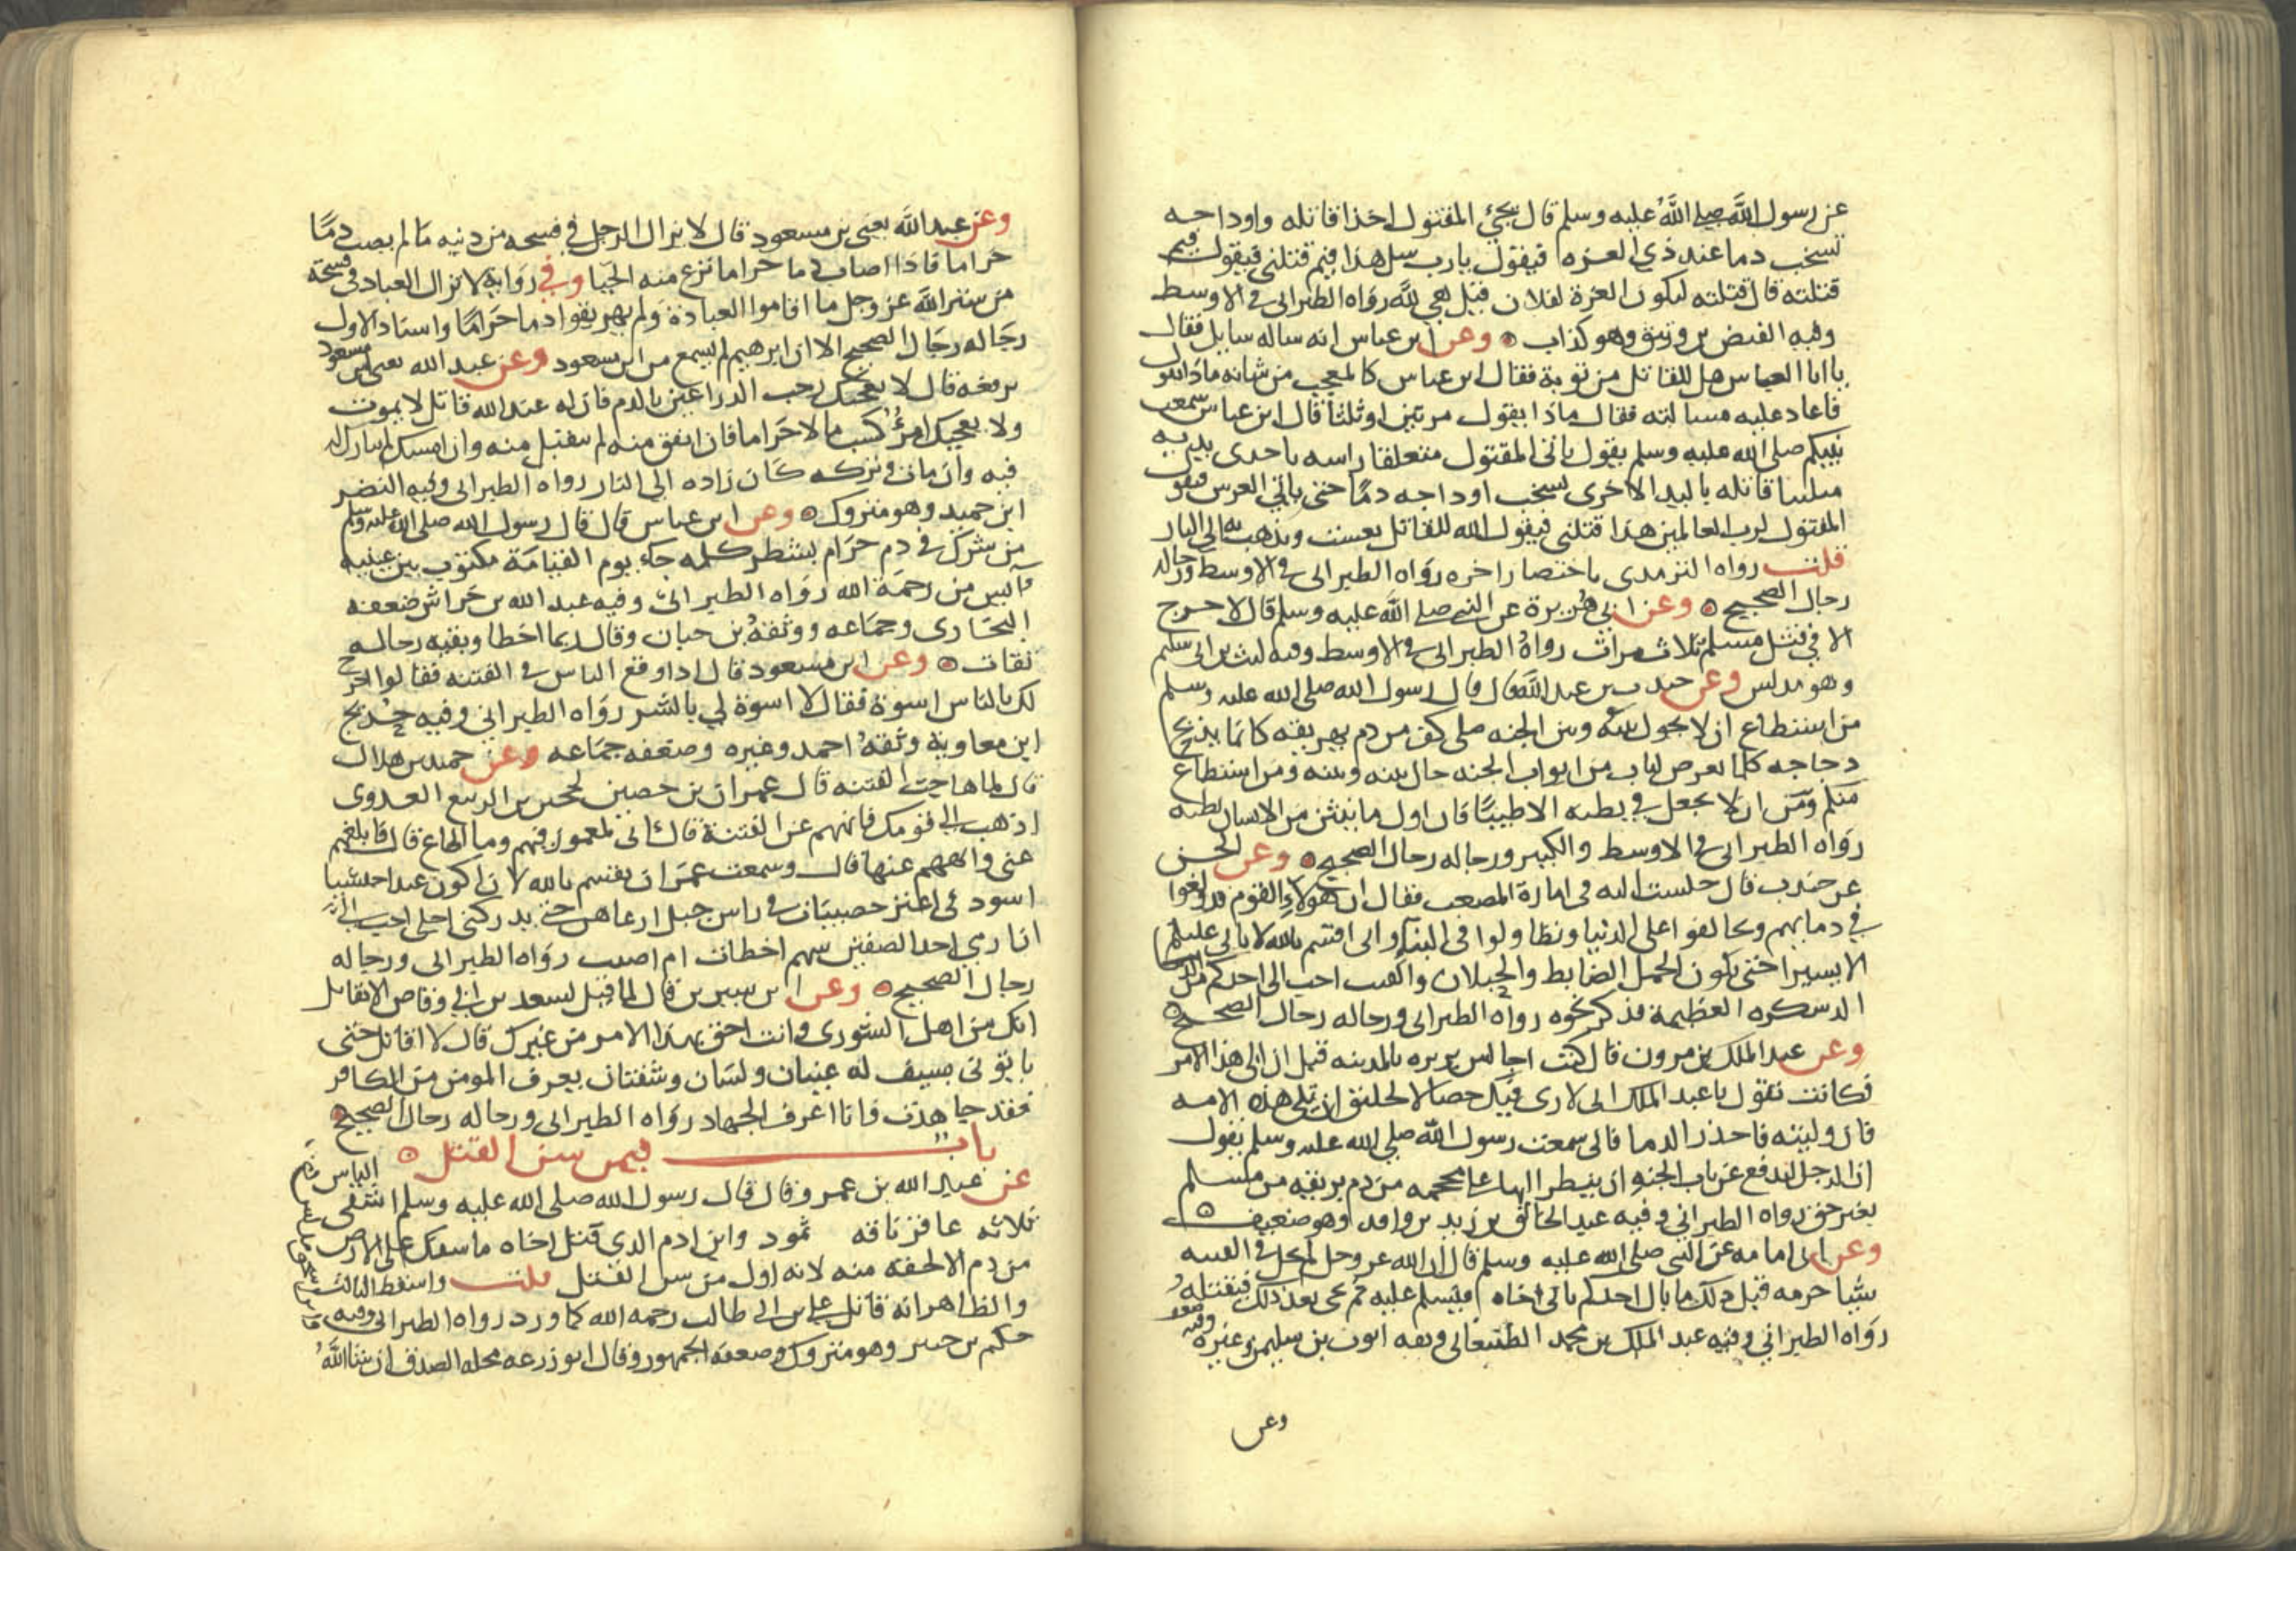 عن رسول الله صلى الله عليه وسلم قال يجئ المقتول اخذا قاتله واوداجه
تشخب دما عند ذي العزه فيقول يارب سل هذا فيم قتلني فيقول فيم
قتلته قال قتلته لتكون العزة لفلان قيل هي لله رواه الطبراني في الاوسط
وفيه الفيض بن وثيق وهو كذاب وعن ابن عباس انه ساله سايل فقال
يا ابا العباس هل للقاتل من توبة فقال ابن عباس كالمعجب من شانه ماذا تقول
فاعاد عليه مسالته فقال ماذا يقول مرتين او ثلثا قال ابن عباس سمعت
نبيكم صلى الله عليه وسلم يقول ياتي المقتول متعلقا راسه باحدى يديه
ملببا قاتله باليد الاخرى تشخب اوداجه دما حتى ياتي العرش فيقول
المقتول لرب العالمين هذا قتلني فيقول الله للقاتل تعست ويذهب به الى النار
قلت رواه الترمذي باختصار اخره رواه الطبراني في الاوسط ورجاله
رجال الصحيح وعن ابي هريرة عن النبي صلى الله عليه وسلم قال لا حرج
الا في قتل مسلم ثلاث مرات رواه الطبراني في الاوسط وفيه ليث بن ابي سليم
وهو مدلس وعن جندب بن عبد الله قال قال رسول الله صلى الله عليه وسلم
من استطاع ان لا يحول بينه وبين الجنه ملى كف من دم يهريقه كانما يذبح
دجاجه كلما تعرض لباب من ابواب الجنه حال بينه وبينه ومن استطاع
منكم ان لا يجعل في بطنه الا طيبا فان اول ما ينتن من الانسان بطنه
رواه الطبراني في الاوسط والكبير ورجاله رجال الصحيح وعن الحسن
عن جندب قال جلست اليه في امارة المصعب فقال ان هؤلاء القوم قد ولغوا
في دمايهم وتحالفوا على الدنيا وتطاولوا في البنا واني اقسم بالله لا ياتي عليكم
الا يسيرا حتى يكون الجمل الضابط والحبلان والقتب احب الى احدكم من
الدسكره العظيمة فذكر نحوه رواه الطبراني ورجاله رجال الصحيح
وعن عبد الملك بن مرون قال كنت اجالس بريره بالمدينه قبل ان الي هذا الامر
فكانت تقول يا عبد الملك اني لارى فيك خصالا لخليق ان تلي هذه الامه
فان وليته فاحذر الدما فاني سمعت رسول الله صلى الله عليه وسلم يقول
ان الرجل ليدفع عن باب الجنه ان ينظر اليها على محجمه من دم يريقه من مسلم
بغير حق رواه الطبراني وفيه عبد الخالق بن زيد بن واقد وهو ضعيف
وعن ابي امامه عن النبي صلى الله عليه وسلم قال ان الله عز وجل لم يحل في الفتنه
شيا حرمه قبل ذلك ما بال احدكم ياتي اخاه فيسلم عليه ثم يجي بعد ذلك فيقتله
رواه الطبراني وفيه عبد الملك بن محمد الصنعاني وثقه ايوب بن سليمن وغيره وفيه ضعف
وعن
وعن عبد الله يعني بن مسعود قال لا يزال الرجل في فسحه من دينه ما لم يصب دما
حراما فاذا اصاب دما حراما نزع منه الحيا وفي رواية لا تزال العباد في فسحة
من ستر الله عز وجل ما اقاموا العبادة ولم يهريقوا دما حراما واسناد الاول
رجاله رجال الصحيح الا ان ابرهيم لم يسمع من ابن مسعود وعن عبد الله يعني ابن مسعود
يرفعه قال لا يعجبك رحب الذراعين بالدم فان له عند الله قاتل لا يموت
ولا يعجبك امرؤ كسب مالا حراما فان انفق منه لم يتقبل منه وان امسك لم يبارك له
فيه وان مات وتركه كان زاده الى النار رواه الطبراني وفيه النضر
ابن حميد وهو متروك وعن ابن عباس قال قال رسول الله صلى الله عليه وسلم
من شرك في دم حرام بشطر كلمه جاء يوم القيامة مكتوب بين عينيه
آيس من رحمة الله رواه الطبراني وفيه عبد الله بن خراش ضعفه
البخاري وجماعه ووثقه بن حبان وقال ربما اخطا وبقيه رجاله
ثقات وعن ابن مسعود قال اذا وقع الناس في الفتنه فقالوا اخرج
لك بالناس اسوة فقال لا اسوة لي بالشر رواه الطبراني وفيه حديج
ابن معاوية وثقه احمد وغيره وضعفه جماعه وعن حميد بن هلال
قال لما هاجت الفتنه قال عمران بن حصين لحجير بن الربيع العدوي
اذهب الى قومك فانههم عن الفتنة قال اني لمغمور فيهم وما اطاع قال فابلغهم
عني وانههم عنها قال وسمعت عمران يقسم بالله لان اكون عبدا حبشيا
اسود في اعنز حصبيات في راس جبل ارعاهن حتى يدركني اجلي احب الي
ان ارمي احد الصفين بسهم اخطات ام اصبت رواه الطبراني ورجاله
رجال الصحيح وعن ابن سيرين قال لما قيل لسعد بن ابي وقاص الا تقاتل
انك من اهل الشورى وانت احق بهذا الامر من غيرك قال لا اقاتل حتى
ياتوني بسيف له عينان ولسان وشفتان يعرف المومن من الكافر
فقد جاهدت وانا اعرف الجهاد رواه الطبراني ورجاله رجال الصحيح
باب فيمن سن القتل
عن عبد الله بن عمرو قال قال رسول الله صلى الله عليه وسلم اشقى الناس
ثلاثه عاقر ناقه ثمود وابن ادم الذي قتل اخاه ما سفك على الارض
من دم الا لحقه منه لانه اول من سن القتل قلت واسقط الثالث
والظاهر انه قاتل علي بن ابي طالب رحمه الله كما ورد رواه الطبراني وفيه
حكيم بن جبير وهو متروك وضعفه الجمهور وقال ابو زرعه محله الصدق ان شاالله